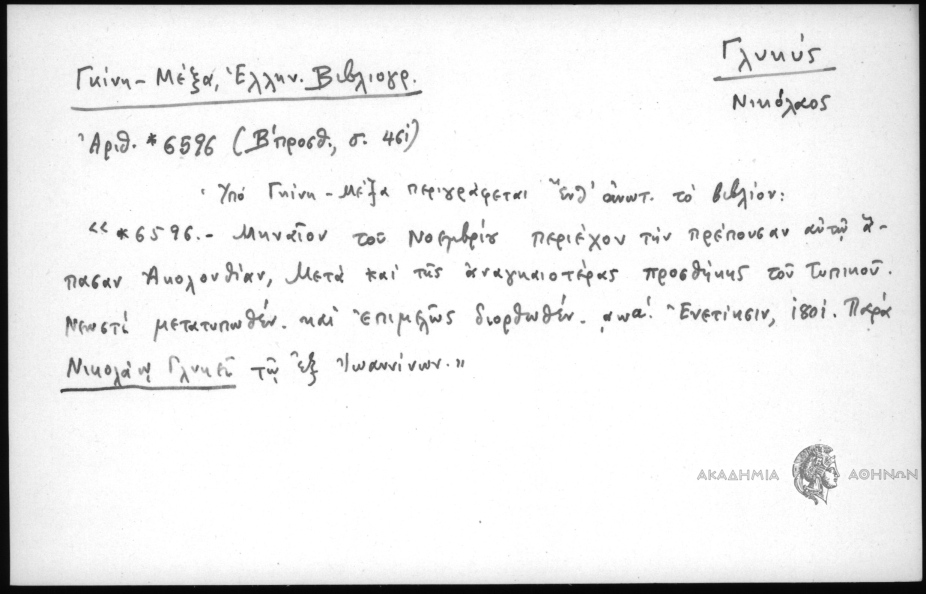 Γλυκύς
Νικόλαος
Γκίνη - Μέξα, Ἑλλην. Βιβλιογρ.
Ἀριθ. *6596 (Β΄ προσθ., σ. 461)
Ὑπό Γκίνη - Μέξα περιγράφεται ἔνθ' ἀνωτ. τὸ βιβλίον:
«*6596.- Μηναῖον τοῦ Νοεμβρίου περιέχον τὴν πρέπουσαν αὐτῷ ἅ-
πασαν Ἀκολουθίαν, Μετὰ καὶ τῆς ἀναγκαιοτέρας προσθήκης τοῦ Τυπικοῦ.
Νεωστὶ μετατυπωθέν. καὶ Ἐπιμελῶς διορθωθέν. ͵αωα΄. Ἐνετίησιν, 1801. Παρὰ
Νικολάῳ Γλυκεῖ τῷ ἐξ Ἰωαννίνων.»
ΑΚΑΔΗΜΙΑ ΑΘΗΝΩΝ